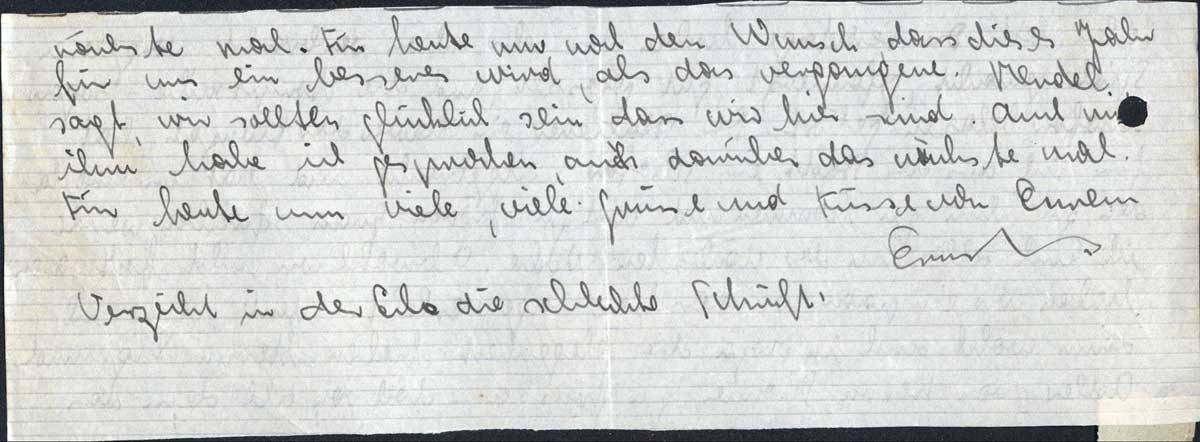 nächste mal. Für heute nur noch den Wunsch, dass dieses Jahr
für uns ein besseres wird, als das vergangene. Mendel
sagt, wir sollten glücklich sein, dass wir hier sind. Auch mit
ihm habe ich gesprochen, auch darüber das nächste mal.
Für heute nun viele, viele Grüsse und Küsse von Eurem
Ernst
Verzeiht in der Eile die schlechte Schrift.